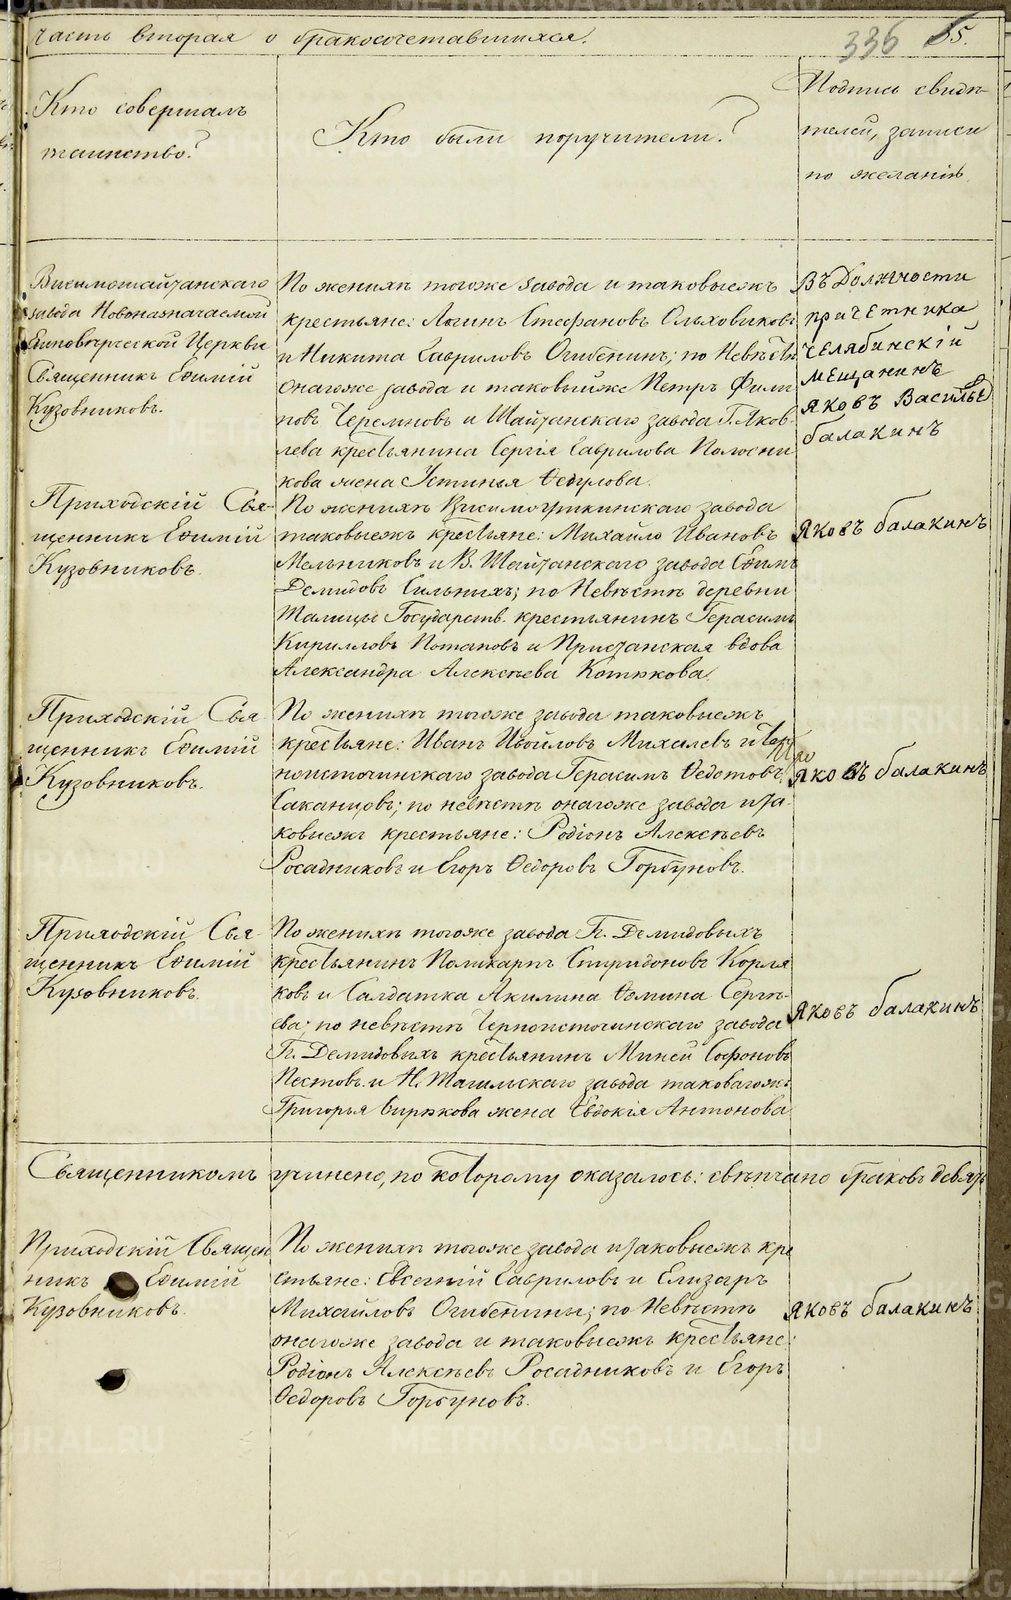 часть вторая о бракосочетавшихся.
336 65.
Кто совершалъ
таинство?
Кто были поручители?
Подпись свидѣ-
телей, записи
по желанію.
Висимошайтанскаго
завода Новоназначаемой
Единоверческой Церкви
Священникъ Ефимій
Кузовниковъ.
По женихѣ тогоже завода и таковыежъ
крестьяне: Логинъ Стефановъ Ольховиковъ
и Никита Гавриловъ Огибенинъ; по Невѣстѣ
онагоже завода и таковыйже Петръ Филип
повъ Черемновъ и Шайтанскаго завода Г. Яков-
лева крестьянина Сергія Гаврилова Полосни
кова жена Устинья Ѳедулова.
Въ Должности
причетника
Челябинскій
мещанинъ
Яковъ Василье
балакинъ
Приходскій Свя-
щенникъ Ефимій
Кузовниковъ.
По женихѣ Висимоуткинскаго завода
таковыежъ крестьяне: Михайло Ивановъ
Мельниковъ и В. Шайтанскаго завода Ефимъ
Демидовъ Сильныхъ; по Невѣстѣ деревни
Талицы Государств. крестьянинъ Герасимъ
Кирилловъ Потаповъ и Пристанская вдова
Александра Алексѣева Котюкова.
Яковъ балакинъ
Приходскій Свя
щенникъ Ефимій
Кузовниковъ.
По женихѣ тогоже завода таковыежъ
крестьяне: Иванъ Ивойловъ Михалевъ и Чер
ноисточинскаго завода Герасимъ Ѳедотовъ
Саканцовъ; по невѣстѣ онагоже завода и та-
ковыежъ крестьяне: Родіонъ Алексѣевъ
Росадниковъ и Егоръ Ѳедоровъ Горбуновъ.
Яковъ балакинъ
Приходскій Свя-
щенникъ Ефимій
Кузовниковъ.
По женихѣ тогоже завода Г. Демидовыхъ
крестьянинъ Поликарпъ Спиридоновъ Корля
ковъ и Салдатка Акилина Ѳомина Сергѣ-
ева; по невѣстѣ Черноисточинскаго завода
Г. Демидовыхъ крестьянинъ Миней Софоновъ
Пестовъ. и Н. Тагильскаго завода таковагожъ
Григорья Бирюкова жена Евдокія Антонова
Яковъ балакинъ
Священникомъ учинено, по которому оказалось: свѣнчано браковъ девять
Приходскій Священ
никъ Ефимій
Кузовниковъ.
По женихѣ тогоже завода и таковыежъ кре
стьяне: Евсегній Гавриловъ и Елизаръ
Михайловъ Огибенины; по Невѣстѣ
онагоже завода и таковыежъ крестьяне:
Родіонъ Алексѣевъ Росадниковъ и Егоръ
Ѳедоровъ Горбуновъ.
Яковъ балакинъ
METRIKI.GASO-URAL.RU